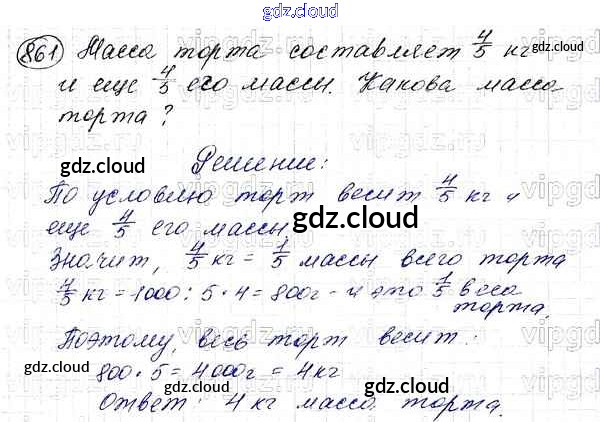 gdz.cloud
861 Масса торта составляет 4/5 кг
и еще 4/5 его массы. Какова масса
торта?
gdz.cloud
Решение:
По условию торт весит 4/5 кг и
еще 4/5 его массы
gdz.cloud
Значит, 4/5 кг = 1/5 массы всего торта
4/5 кг = 1000 : 5 · 4 = 800г - и это 1/5 веса
торта.
gdz.cloud
gdz.cloud
Поэтому, весь торт весит:
gdz.cloud
800 · 5 = 4000г = 4кг
gdz.cloud
Ответ: 4 кг масса торта.